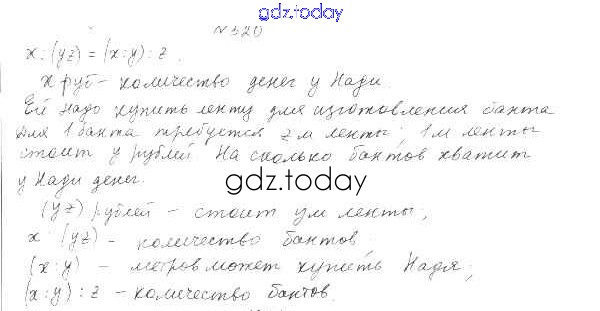 gdz.today
№ 320
x : (yz) = (x : y) : z.
x руб - количество денег у Нади.
Ей надо купить ленту для изготовления банта
Для 1 банта требуется z м ленты; 1 м ленты
стоит y рублей. На сколько бантов хватит
у Нади денег.
gdz.today
(yz) рублей - стоит y м ленты;
x : (yz) - количество бантов
(x : y) - метров может купить Надя;
(x : y) : z - количество бантов.